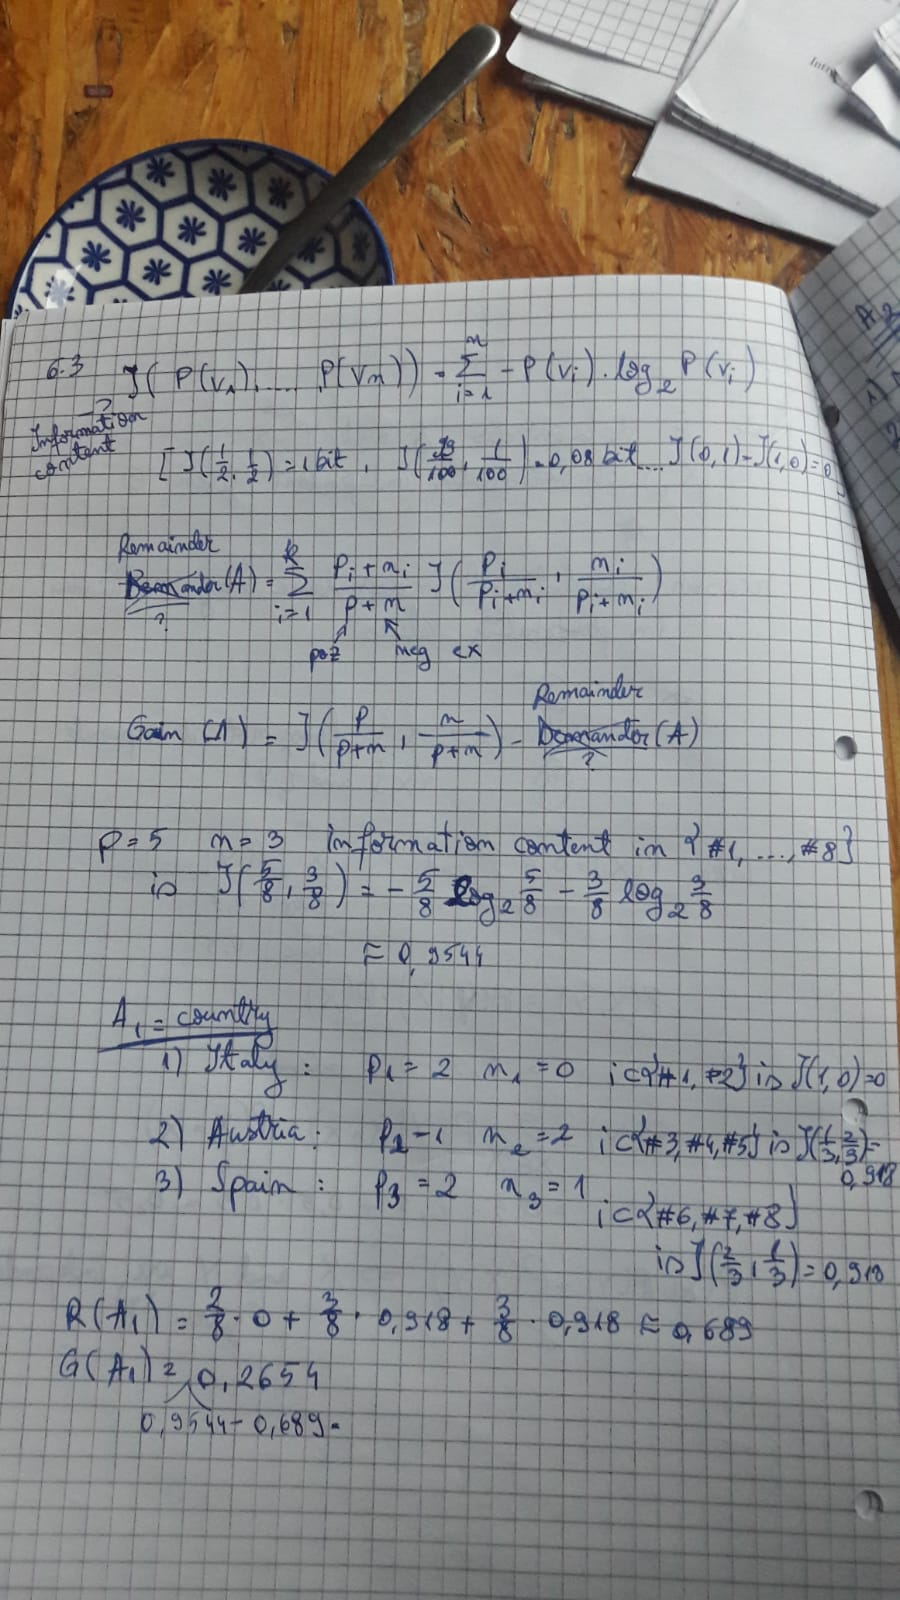 6.3 I( P(v₁), .... P(vn)) = Σ i=1 n - P(vi) · log₂ P(vi)
→ Information content
[ I(1/2, 1/2) = 1 bit, I(99/100, 1/100) = 0,08 bit ... I(0,1) = I(1,0) = 0
Remainder
(A) = Σ i=1 k (pi + ni)/(p + n) I( pi/(pi+ni) , ni/(pi+ni) )
?
poz neg ex
Remainder
Gain (A) = I( p/(p+n) , n/(p+n) ) - (A)
?
p = 5 n = 3 information content in {#1, ..., #8}
is I( 5/8 , 3/8 ) = - 5/8 log₂ 5/8 - 3/8 log₂ 3/8
≈ 0,9544
A₁ = country
1) Italy : p₁ = 2 n₁ = 0 ic{#1, #2} is I(1,0)=0
2) Austria : p₂ = 1 n₂ = 2 ic{#3, #4, #5} is I(1/3, 2/3) =
0,918
3) Spain : p₃ = 2 n₃ = 1
ic{#6, #7, #8}
is I(2/3, 1/3) = 0,918
R(A₁) = 2/8 · 0 + 3/8 · 0,918 + 3/8 · 0,918 ≈ 0,689
G(A₁) = 0,2654
0,9544 - 0,689 =